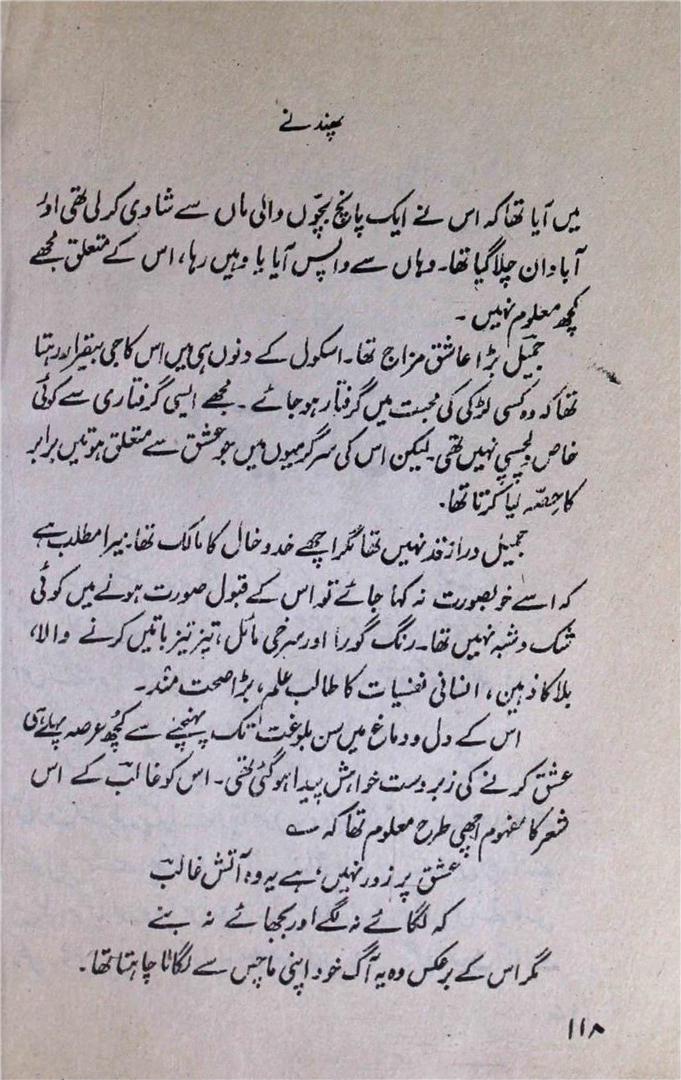 پھندنے
میں آیا تھا کہ اس نے ایک پانچ بچّوں والی ماں سے شادی کر لی تھی اور
آبادان چلا گیا تھا۔ وہاں سے واپس آیا یا وہیں رہا، اس کے متعلق مجھے
کچھ معلوم نہیں۔
جمیل بڑا عاشق مزاج تھا۔ اسکول کے دنوں ہی میں اس کا جی بیقرار رہتا
تھا کہ وہ کسی لڑکی کی محبت میں گرفتار ہو جائے۔ مجھے ایسی گرفتاری سے کوئی
خاص دلچسپی نہیں تھی۔ لیکن اس کی سرگرمیوں میں جو عشق سے متعلق ہوتیں برابر
کا حِصّہ لیا کرتا تھا۔
جمیل دراز قد نہیں تھا مگر اچھے خد و خال کا مالک تھا۔ میرا مطلب ہے
کہ اسے خوبصورت نہ کہا جائے تو اس کے قبول صورت ہونے میں کوئی
شک و شبہ نہیں تھا۔ رنگ گورا اور سرخی مائل، تیز تیز باتیں کرنے والا،
بلا کا ذہین، انسانی نفسیات کا طالب علم، بڑا صحت مند۔
اس کے دل و دماغ میں سن بلوغت تک پہنچنے سے کچھ عرصہ پہلے ہی
عشق کرنے کی زبردست خواہش پیدا ہو گئی تھی۔ اس کو غالبؔ کے اس
شعر کا مفہوم اچھی طرح معلوم تھا کہ ؎
عشق پر زور نہیں، ہے یہ وہ آتش غالبؔ
کہ لگائے نہ لگے اور بجھائے نہ بنے
مگر اس کے برعکس وہ یہ آگ خود اپنی ماچس سے لگانا چاہتا تھا۔
۱۱۸